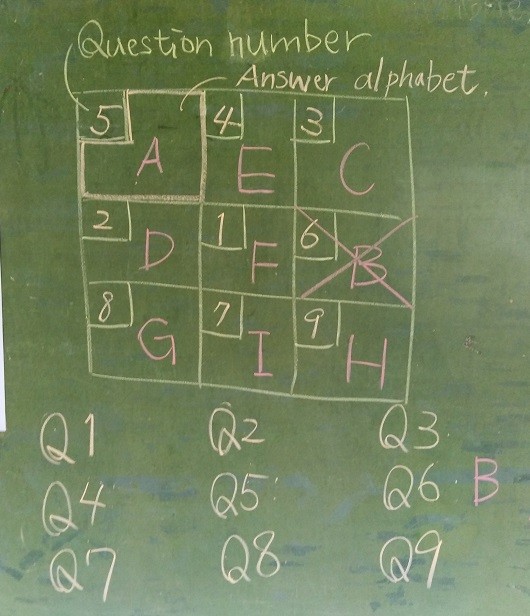 Question number
Answer alphabet.
5 A 4 E 3 C
2 D 1 F 6 B
8 G 7 I 9 H
Q1 Q2 Q3
Q4 Q5 Q6 B
Q7 Q8 Q9